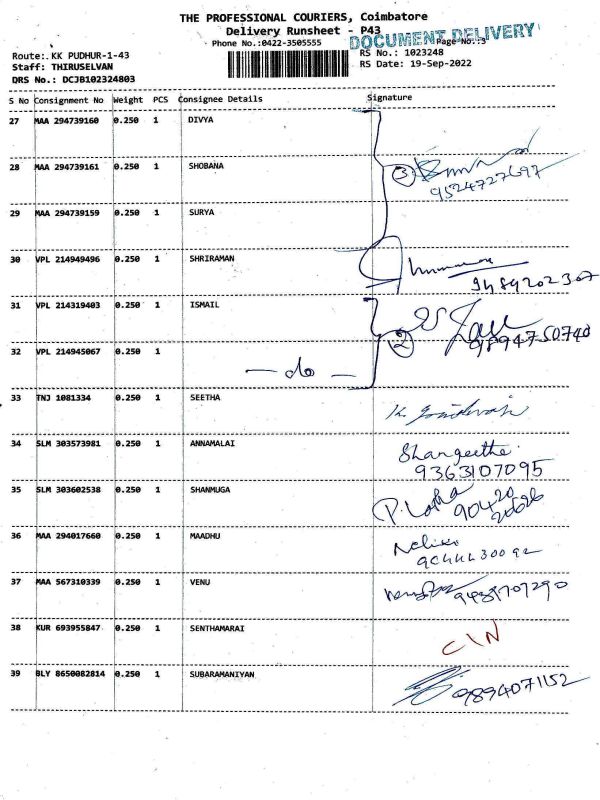 THE PROFESSIONAL COURIERS, Coimbatore
Delivery Runsheet - P43
DOCUMENT DELIVERY
Phone No:0422-3505555 Page No.:3
Route:. KK PUDHUR-1-43 RS No.: 1023248
Staff: THIRUSELVAN RS Date: 19-Sep-2022
DRS No.: DCJB102324803
S No Consignment No Weight PCS Consignee Details Signature
27 MAA 294739160 0.250 1 DIVYA
28 MAA 294739161 0.250 1 SHOBANA 3
9524727697
29 MAA 294739159 0.250 1 SURYA
30 VPL 214949496 0.250 1 SHRIRAMAN
9489202307
31 VPL 214319403 0.250 1 ISMAIL
2 9894750740
32 VPL 214945067 0.250 1
— do —
33 TNJ 1081334 0.250 1 SEETHA
34 SLM 303573981 0.250 1 ANNAMALAI Shangeetha
9363107095
35 SLM 303602538 0.250 1 SHANMUGA P. Latha 90420
20626
36 MAA 294017660 0.250 1 MAADHU
37 MAA 567310339 0.250 1 VENU
38 KUR 693955847 0.250 1 SENTHAMARAI CIN
39 BLY 8650082814 0.250 1 SUBARAMANIYAN 9894071152